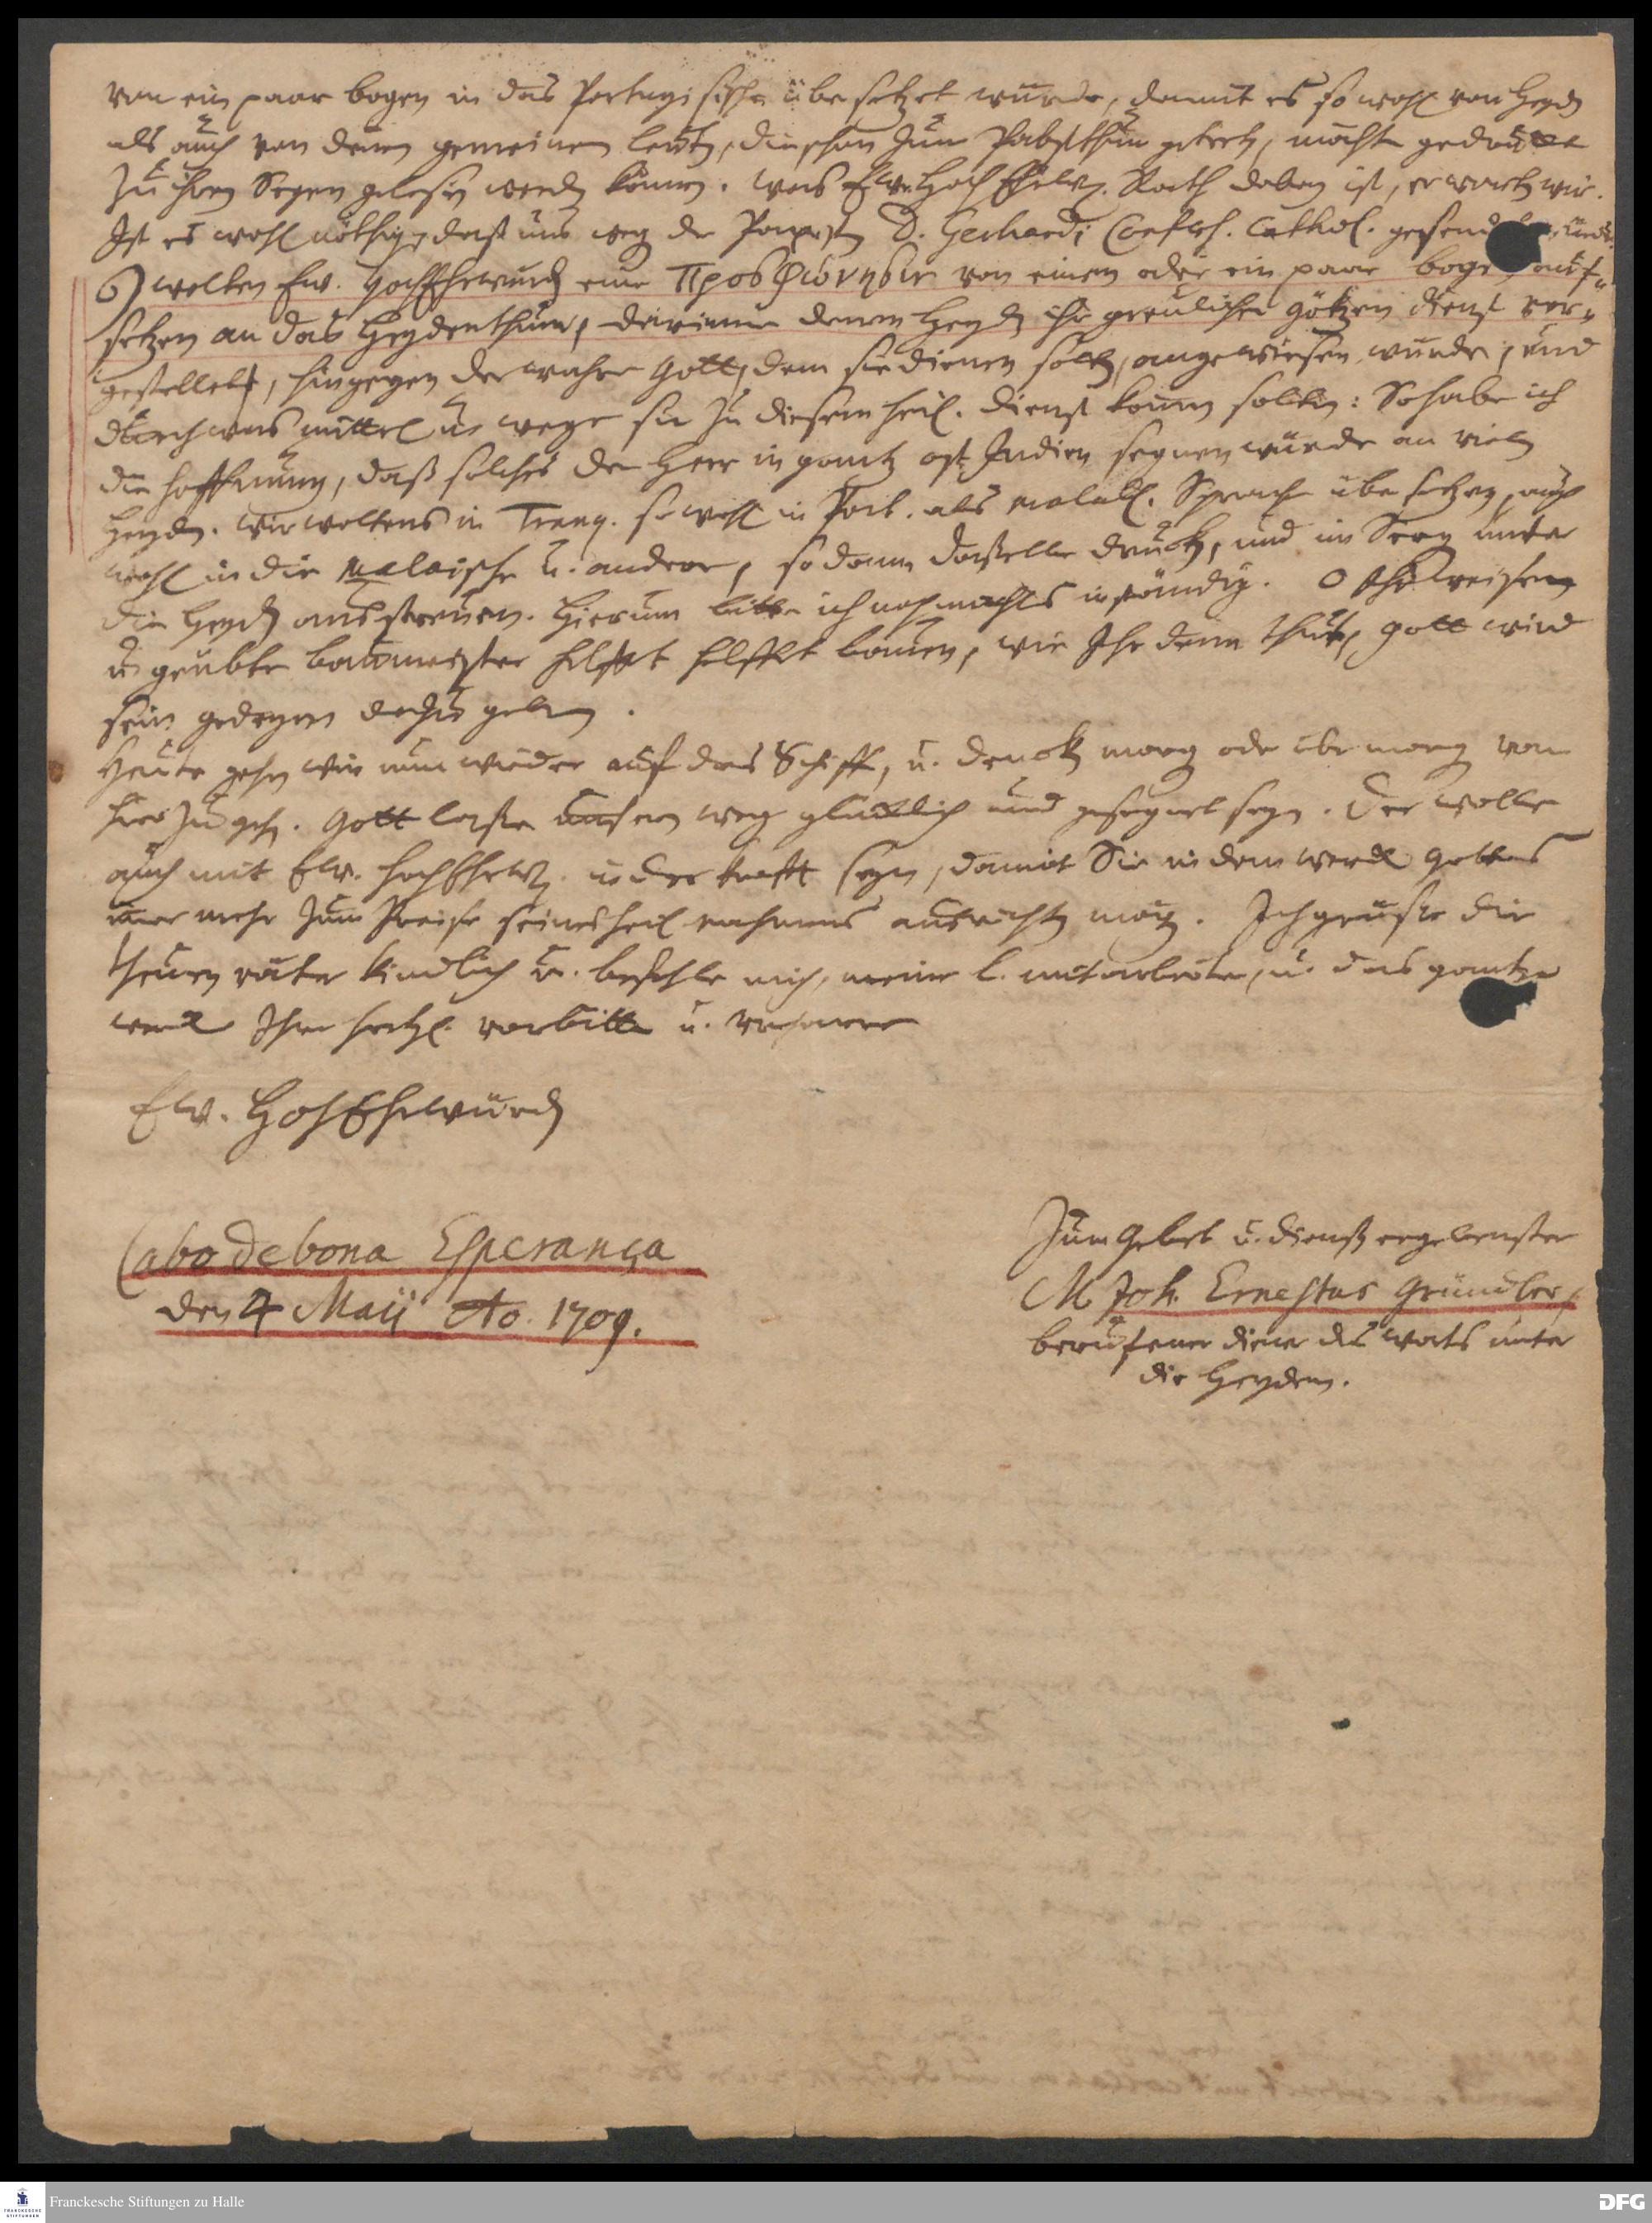 von ein paar bogen in das Portugisische übersetzet würde, damit es so wohl von Heyd.
als auch von denen gemeinen leut, die schon zum Pabstthum gekert, möchte gedruckt
zu ihren Segen gelesen werd können. Was Ew. HochEhrw. Rath dabey ist, erwart wir.
Ist es wohl nöthig, daß uns weg der Papist D. Gerhardi Confess. Cathol. gesend
6) wolten Ew. HochEhrwürd eine Προσφώνησιν von einen oder ein paar boge auf-
setzen an das Heydenthum, darinne denen Heyd ihr greulicher Götzen dienst vor-
gestellet, hingegen der wahre Gott, dem sie dienen solt, angewiesen wurde, und
durch was mittel u. wege sie zu diesem heil. dienst komen solten: So habe ich
die hoffnung, daß solches der Herr in gantz ost Indien segnen würde an viel
Heyd. Wir woltens in Tranq. so wohl in Port. als malab. Sprach übersetzen, auch
wohl in die Malaische u. andere, so dann daselbst druck, und im Seeg unter
die Heyd ausstreuen. Hierum bitte ich nochmahls inständig. O Ihr weisen
u. geübte baumeister helfft helfft bauen, wie Ihr denn thut, Gott wird
sein gedeyen dazu geben.
Heute gehn wir nun wieder auf das Schiff, u. denck morg oder übermorg von
hier zu gehn. Gott laße unsern weg glücklich und gesegnet seyn. Der wolle
auch mit Ew. HochEhrw. in der krafft seyn, damit Sie in dem werck Gottes
imer mehr zum Preise seines heil nahmens ausricht mög. Ich grüße die
theuren väter kindlich u. befehle mich, meine l. mitarbeiter, u. das gantze
werck Ihrer hertzl. vorbitte u. verharre
Ew. HochEhrwürd
Cabo de bona Esperança
den 4 Maii Ao. 1709.
Zum Gebet u. dienst ergebenster
M Joh. Ernestus Gründler,
beruffener diener des worts unter
die Heyden.
Franckesche Stiftungen zu Halle
FRANCKESCHE
STIFTUNGEN
DFG